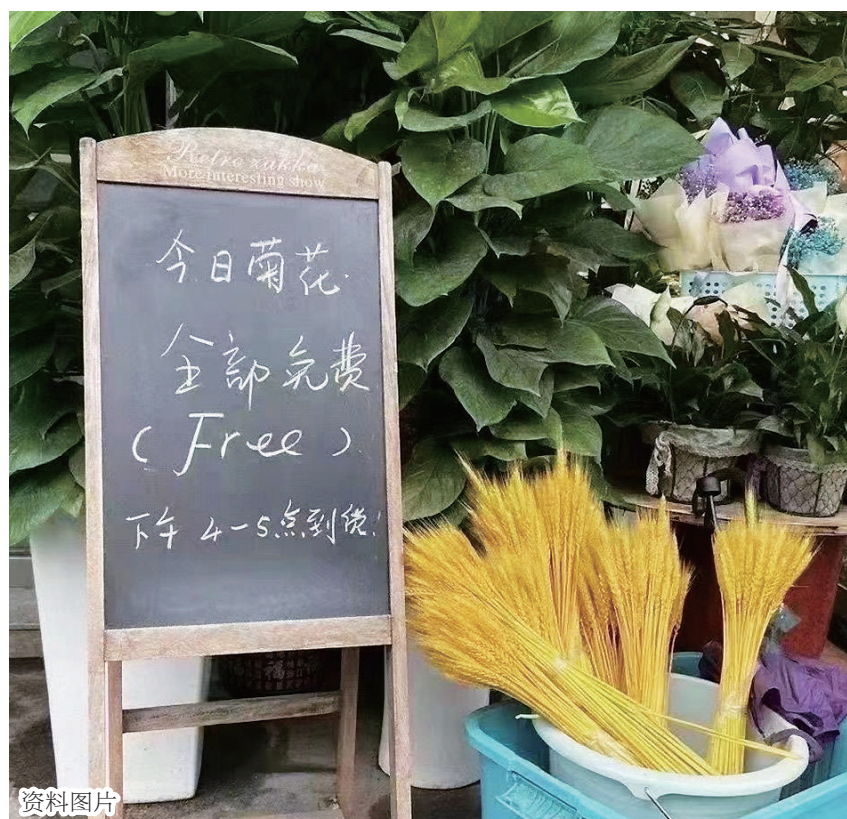 Retro zakka
More interesting show
今日菊花.
全部免费
(Free)
下午4-5点到货!
资料图片